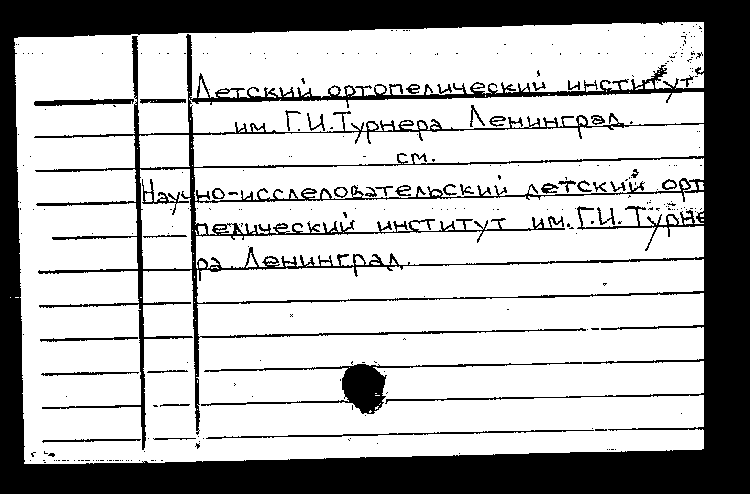 Детский ортопедический институт
им. Г.И.Турнера. Ленинград.
см.
Научно-исследовательский детский орт
педический институт им. Г.И. Турне
ра. Ленинград.